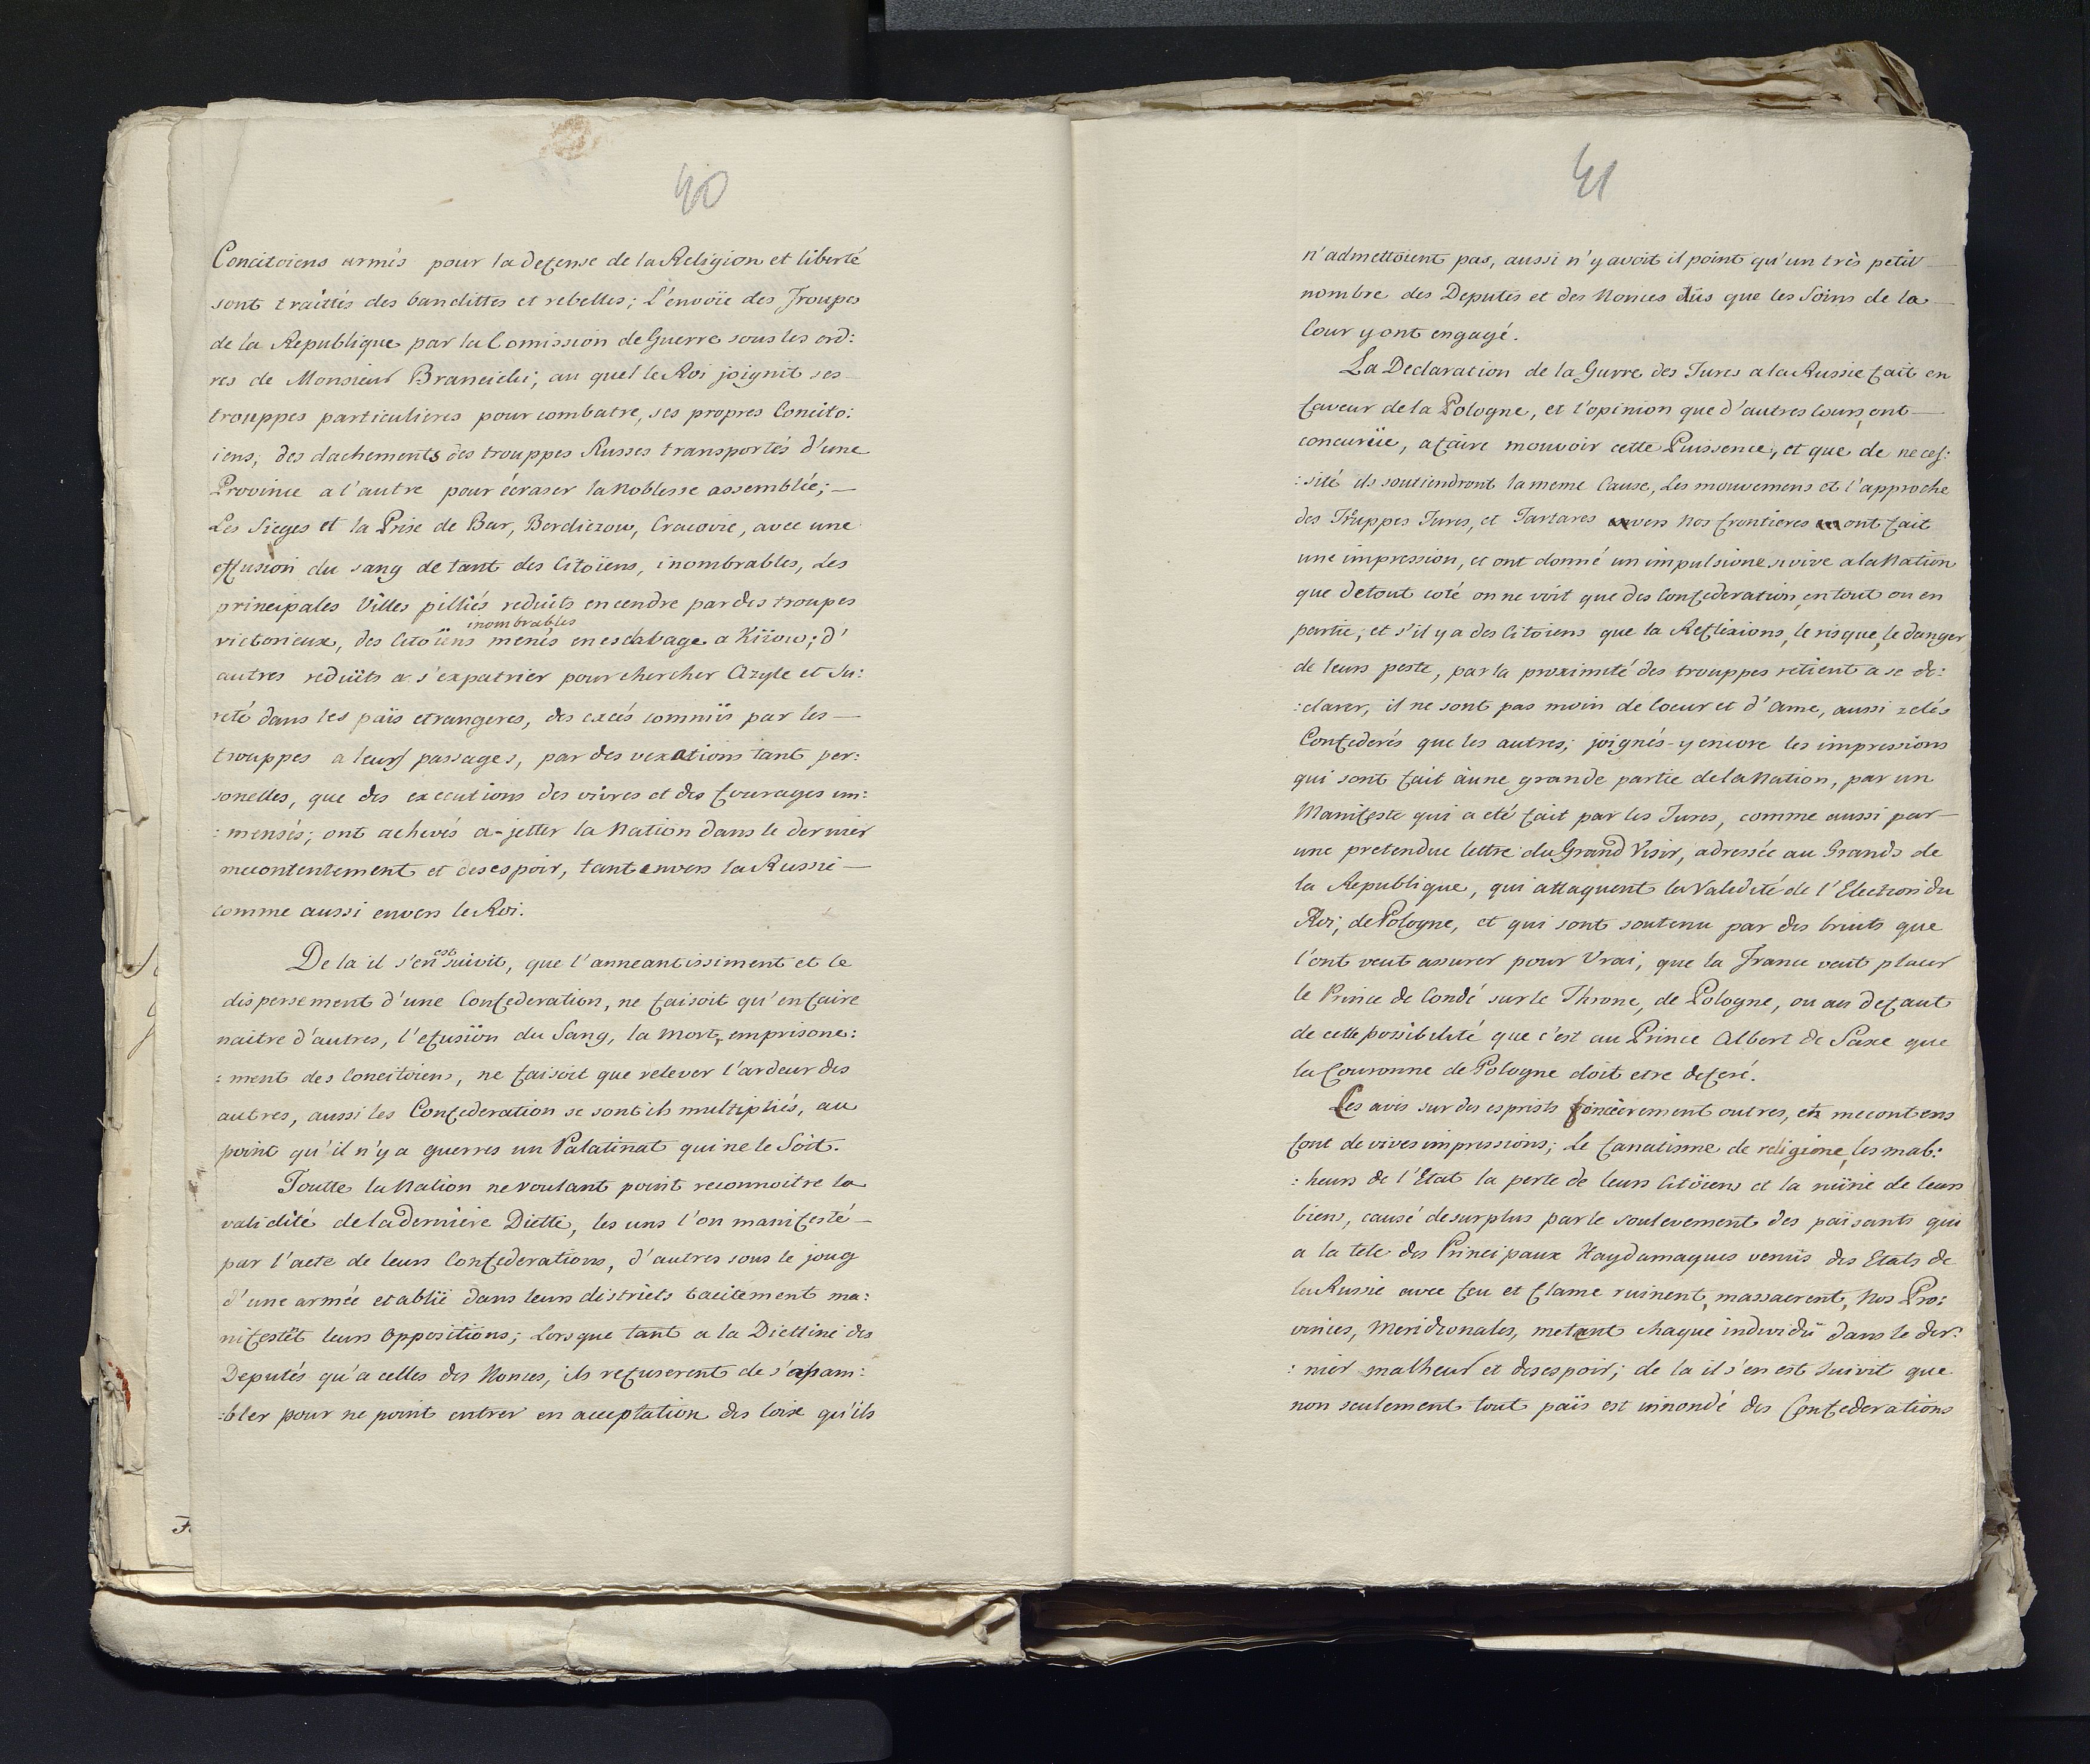 40
Concitoiens armés pour la defense de la Religion et liberté
sont traittés des bandittes et rebelles; L'envoïe des Trouppes
de la Republique par la Comission de Guerre sous les ord:
res de Monsieur Braneicki, au quel le Roi joignit ses
trouppes particulieres pour combatre, ses propres Concito:
iens; des dachements des trouppes Russes transportés d'une
Province a l'autre pour écraser la Noblesse assemblée; —
Les Sieges et la Prise de Bar, Berdiczow, Cracovie, avec une
effusion du sang de tant des Citoïens, inombrables, Les
principales Villes pilliés reduits en cendre par des troupes
inombrables
victorieux, des Citoïens menés en esclabage a Kiïow; d'
autres reduits a s'expatrier pour chercher Azyle et Su:
reté dans les païs etrangeres, des excés commïs par les —
trouppes a leurs passages, par des vexations tant per:
sonelles, que des executions des vivres et des fourages im:
: mensés; ont achevés a-jetter la Nation dans le dernier
mecontentement et desespoir, tant envers la Russie —
comme aussi envers le Roi.
De la il s'en est suivit, que l'anneantissiment et le
dispersement d'une Confederation, ne faisoit qu'en faire
naitre d'autres, l'efusiön du Sang, la Mort, emprisone:
: ment des Concitoiens, ne faisoit que relever l'ardeur des
autres, aussi les Confederation se sont ils multipliés, au
point qu'il n'y a guerres un Palatinat qui ne le Soit.
Toutte la Nation ne voulant point reconnoitre la
validité de la derniere Diette, les uns l'on manifesté —
par l'acte de leurs Confederations, d'autres sous le joug
d'une armée etablië dans leurs districts tacitement ma:
nifestët leurs Oppositions; Lorsque tant a la Diettine des
Deputés qu'a celles des Nonces, ils refuserent de s'assam:
:bler pour ne point entrer en acceptation des loix qu'ils
41
n'admettoient pas, aussi n'y avoit il point qu'un très petit —
nombre des Deputés et des Nonces dûs que les Soins de la —
Cour y ont engagé.
La Declaration de la Gurre des Turcs a la Russie fait en
faveur de la Pologne, et l'opinion que d'autres Cours, ont —
concurüe, a faire mouvoir cette Puissence, et que de neces:
: sité ils soutiendront la meme Cause, Les mouvemens et l'approche
des Truppes Turcs, et Tartares envers Nos frontieres ont fait
une impression, et ont donné un impulsione si vive a la Nation
que de tout coté on ne voit que des Confederation, en tout ou en
partie; et s'il y a des Citoiens que la Reflixions, le risque, le danger
de leurs peste, par la proximité des trouppes retient a se de:
:clarer, il ne sont pas moin de Coeur et d'Ame, aussi zelés
Confederés que les autres; joignés-y encore les impressions
qui sont fait àune grande partie de la Nation, par un
Manifeste qui a eté fait par les Turcs, comme aussi par —
une pretendue lettre du Grand Visir, adressée au Grands de
la Republique, qui attaquent la Validité de l'Election du
Roi, de Pologne, et qui sont soutenu par des bruits que
l'ont veut assurer pour Vrai, que la France veut placer
le Prince de Condé sur le Throne, de Pologne, ou au defaut
de cette possibilité que c'est au Prince Albert de Saxe que
la Couronne de Pologne doit etre deferé.
Ces avis sur des esprists foncierement outres, et mecontens
font de vives impressions; Le fanatisme de religione, les mal:
: heurs de l'Etat la perte de leurs Citöiens et la ruïne de leurs
biens, causé de surplus par le soulevement des païsants qui
a la tete des Principaux Haydamaques venüs des Etats de
la Russie avec feu et flame ruinent, massacrent, Nos Pro:
vinces, Meridionales, metant chaque individü dans le der:
: nier malheur et desespoir; de la il s'en est Suivit que
non seulement tout païs est innondé des Confederations